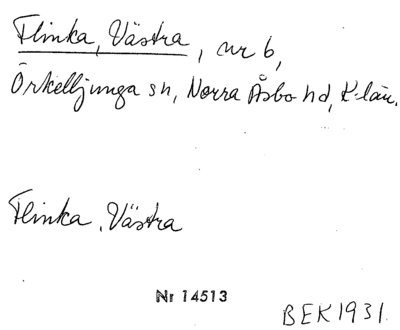 Flinka, Västra, nr 6,
Örkelljunga sn, Norra Åsbo hd, K-län.
Flinka, Västra
Nr 14513
BEK 1931.